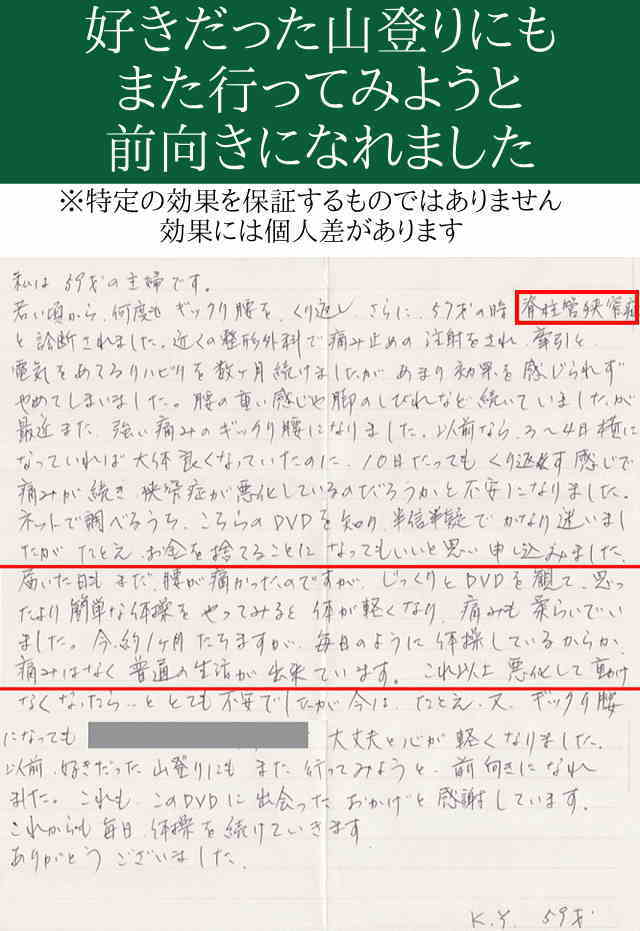 好きだった山登りにも
また行ってみようと
前向きになれました
※特定の効果を保証するものではありません
効果には個人差があります
私は59才の主婦です。
若い頃から、何度もギックリ腰をくり返しさらに、57才の時脊柱管狭窄症
と診断されました。近くの整形外科で痛み止めの注射をされ、牽引と
電気をあてるリハビリを数ヶ月続けましたがあまり効果を感じられず
やめてしまいました。腰の重い感じや脚のしびれなど続いていましたが
最近また、強い痛みのギックリ腰になりました。以前なら、3〜4日横に
なっていれば大体良くなっていたのに、10日たってもくり返す感じで
痛みが続き、狭窄症が悪化しているのだろうかと不安になりました。
ネットで調べるうち、こちらのDVDを知り、半信半疑でかなり迷いまし
たがたとえ、お金を捨てることになってもいいと思い申し込みました。
届いた日もまだ、腰が痛かったのですが、じっくりとDVDを観て、思っ
たより簡単な体操をやってみると体が軽くなり、痛みも柔らいでい
ました。今、約1ヶ月たちますが、毎日のように体操しているからか、
痛みはなく普通の生活が出来ています。これ以上悪化して動け
なくなったら…ととても不安でしたが今は、たとえ、又、ギックリ腰
になっても 大丈夫と心が軽くなりました。
以前、好きだった山登りにもまた行ってみようと、前向きになれ
ました。これも、このDVDに出会ったおかげと感謝しています。
これからも毎日、体操を続けていきます。
ありがとうございました。
K.Y. 59才